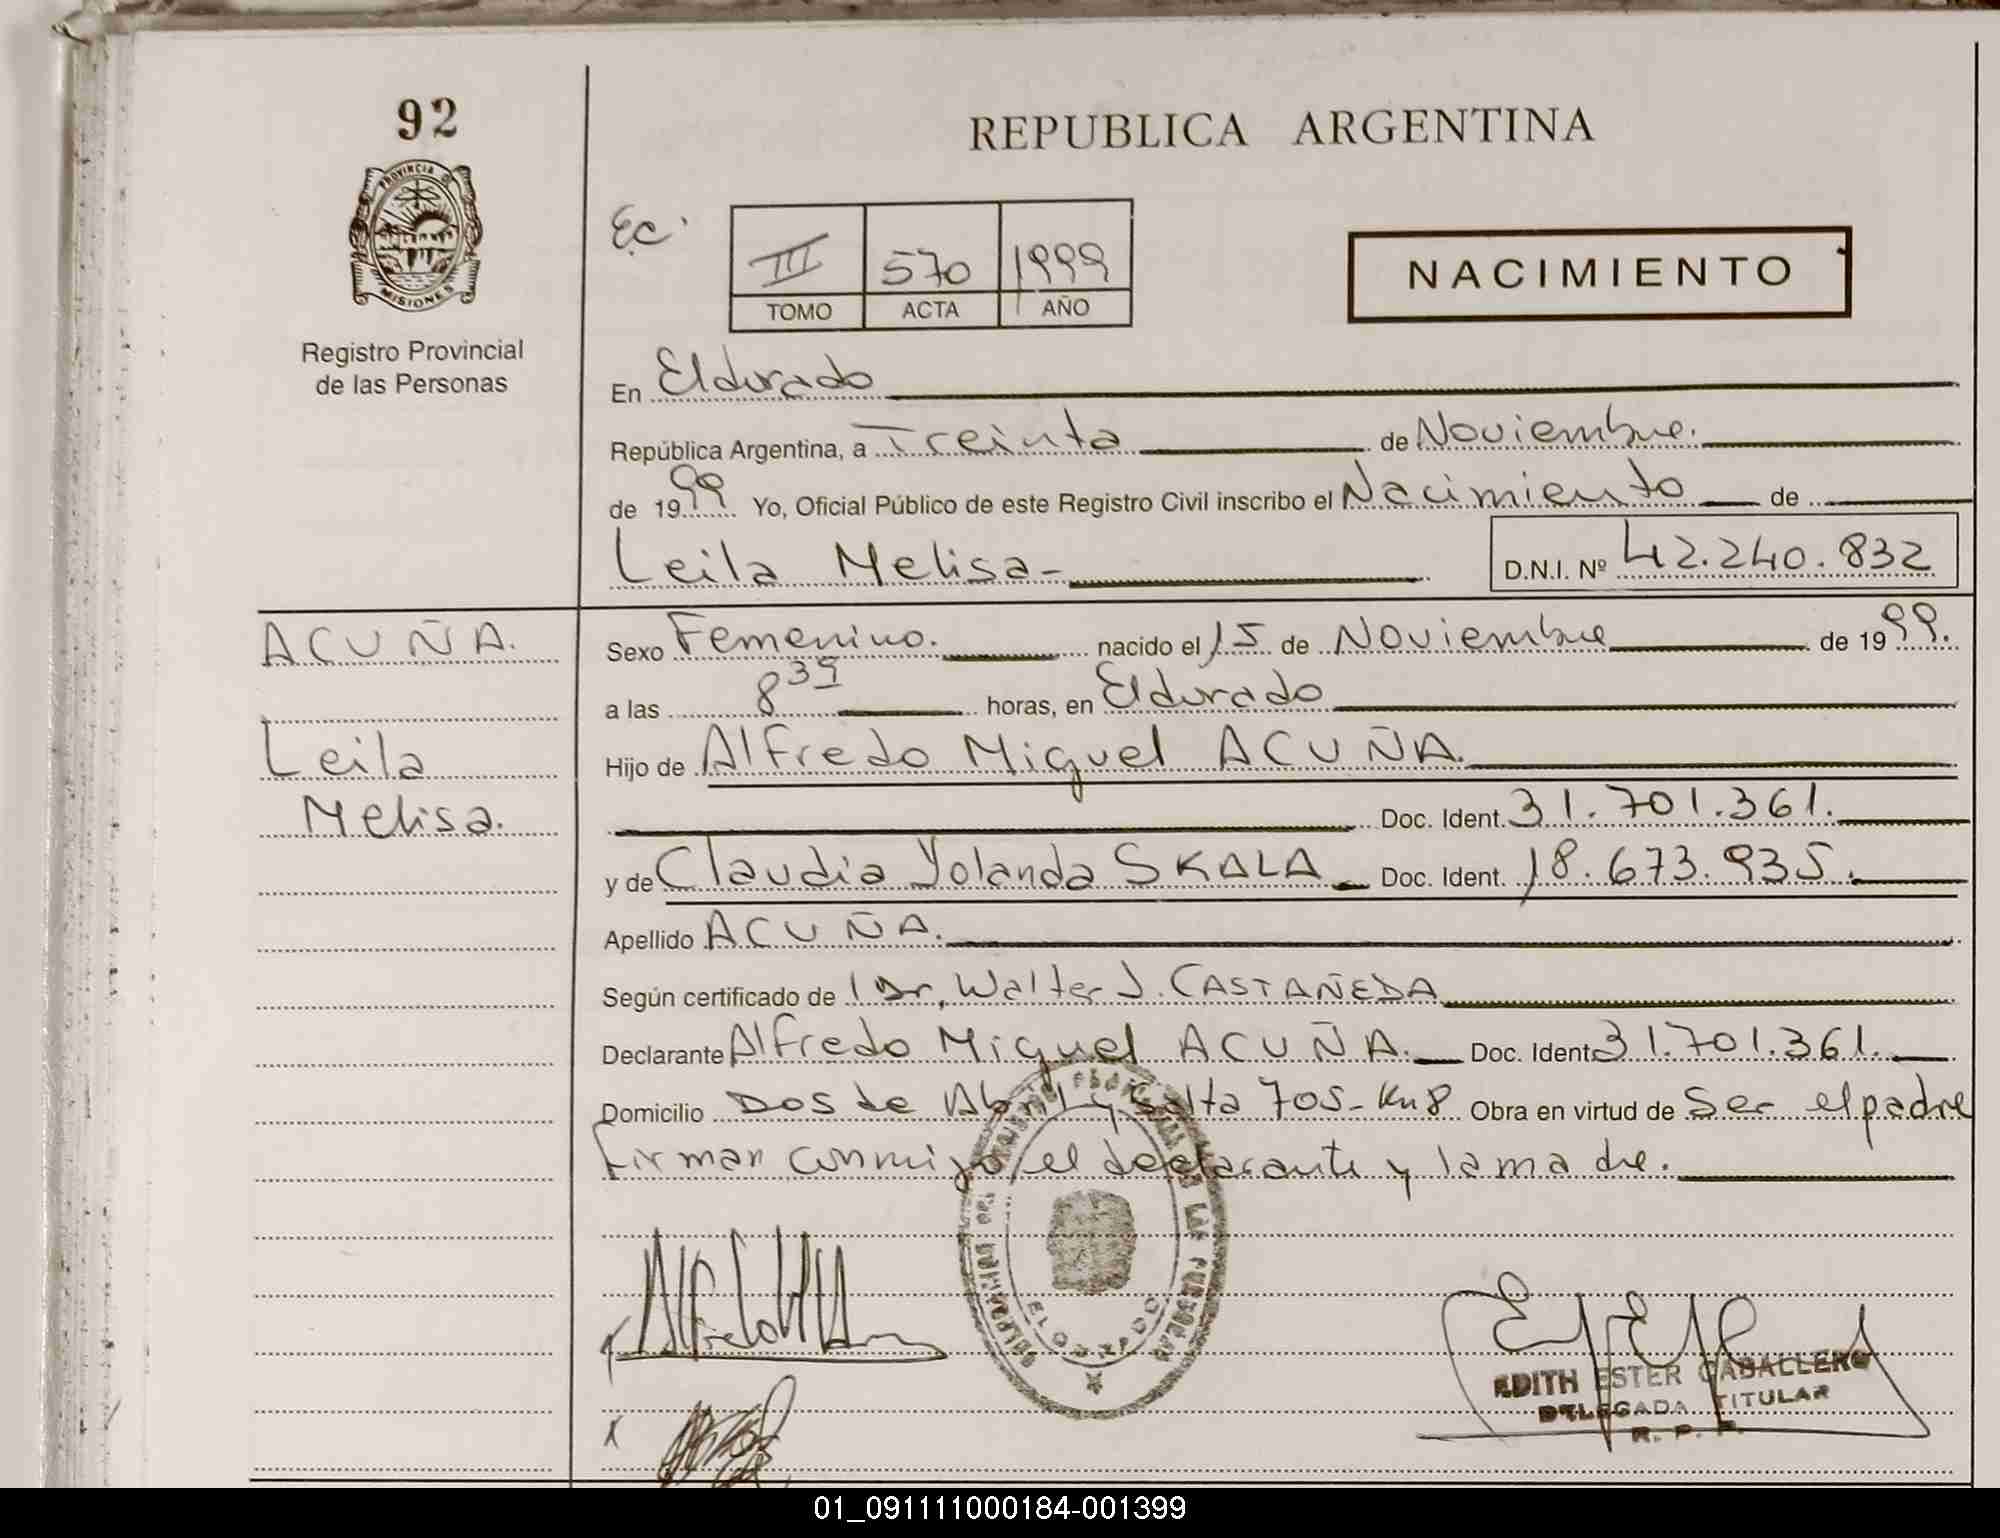 92
PROVINCIA D
MISIONES
Registro Provincial
de las Personas
REPUBLICA ARGENTINA
Ec.
III 570 1999
TOMO ACTA AÑO
NACIMIENTO
En Eldorado
República Argentina, a Treinta de Noviembre.
de 1999 Yo, Oficial Público de este Registro Civil inscribo el Nacimiento de
Leila Melisa- D.N.I. Nº 42.240.832
ACUÑA.
Leila
Melisa.
Sexo Femenino. nacido el 15 de Noviembre de 1999.
a las 8 39 horas, en Eldorado
Hijo de Alfredo Miguel ACUÑA.
Doc. Ident. 31.701.361.
y de Claudia Yolanda SKALA Doc. Ident. 18.673.935.
Apellido ACUÑA.
Según certificado de Dr, Walter J. CASTAÑEDA
Declarante Alfredo Miguel ACUÑA. Doc. Ident. 31.701.361.
Domicilio Dos de Abril y Salta 705- Km 8 Obra en virtud de Ser el padre
Firman conmigo el declarante y la madre.
ELDORADO
EDITH ESTER CABALLERO
DELEGADA TITULAR
R. P. P.
01_091111000184-001399